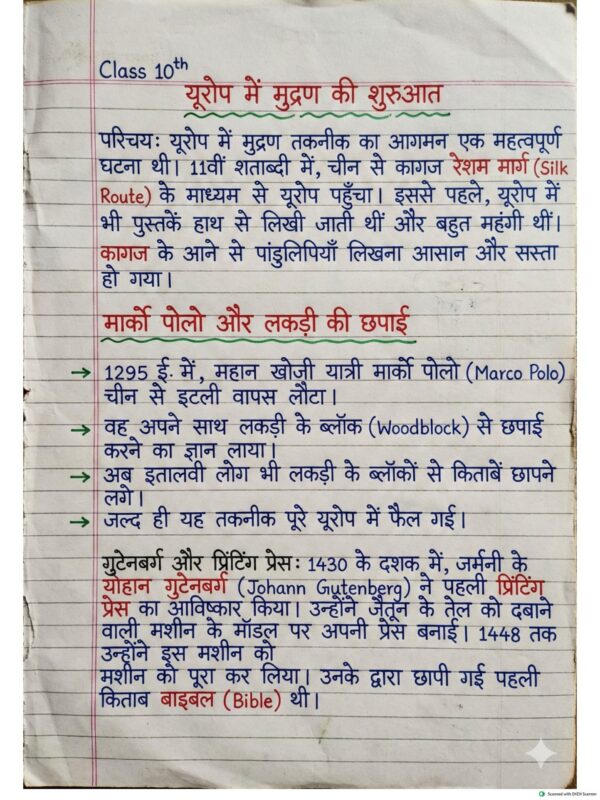 Class 10th
यूरोप में मुद्रण की शुरुआत
परिचयः यूरोप में मुद्रण तकनीक का आगमन एक महत्वपूर्ण
घटना थी। 11वीं शताब्दी में, चीन से कागज रेशम मार्ग (Silk
Route) के माध्यम से यूरोप पहुँचा। इससे पहले, यूरोप में
भी पुस्तकें हाथ से लिखी जाती थीं और बहुत महंगी थीं।
कागज के आने से पांडुलिपियाँ लिखना आसान और सस्ता
हो गया।
मार्को पोलो और लकड़ी की छपाई
→ 1295 ई. में, महान खोजी यात्री मार्को पोलो (Marco Polo)
चीन से इटली वापस लौटा।
→ वह अपने साथ लकड़ी के ब्लॉक (Woodblock) से छपाई
करने का ज्ञान लाया।
→ अब इतालवी लोग भी लकड़ी के ब्लॉकों से किताबें छापने
लगे।
→ जल्द ही यह तकनीक पूरे यूरोप में फैल गई।
गुटेनबर्ग और प्रिंटिंग प्रेसः 1430 के दशक में, जर्मनी के
योहान गुटेनबर्ग (Johann Gutenberg) ने पहली प्रिंटिंग
प्रेस का आविष्कार किया। उन्होंने जैतून के तेल को दबाने
वाली मशीन के मॉडल पर अपनी प्रेस बनाई। 1448 तक
उन्होंने इस मशीन को
मशीन को पूरा कर लिया। उनके द्वारा छापी गई पहली
किताब बाइबल (Bible) थी।
Scanned with OKEN Scanner